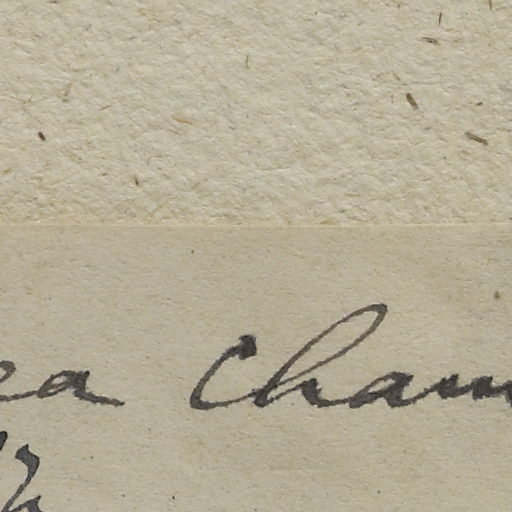 ea Cham